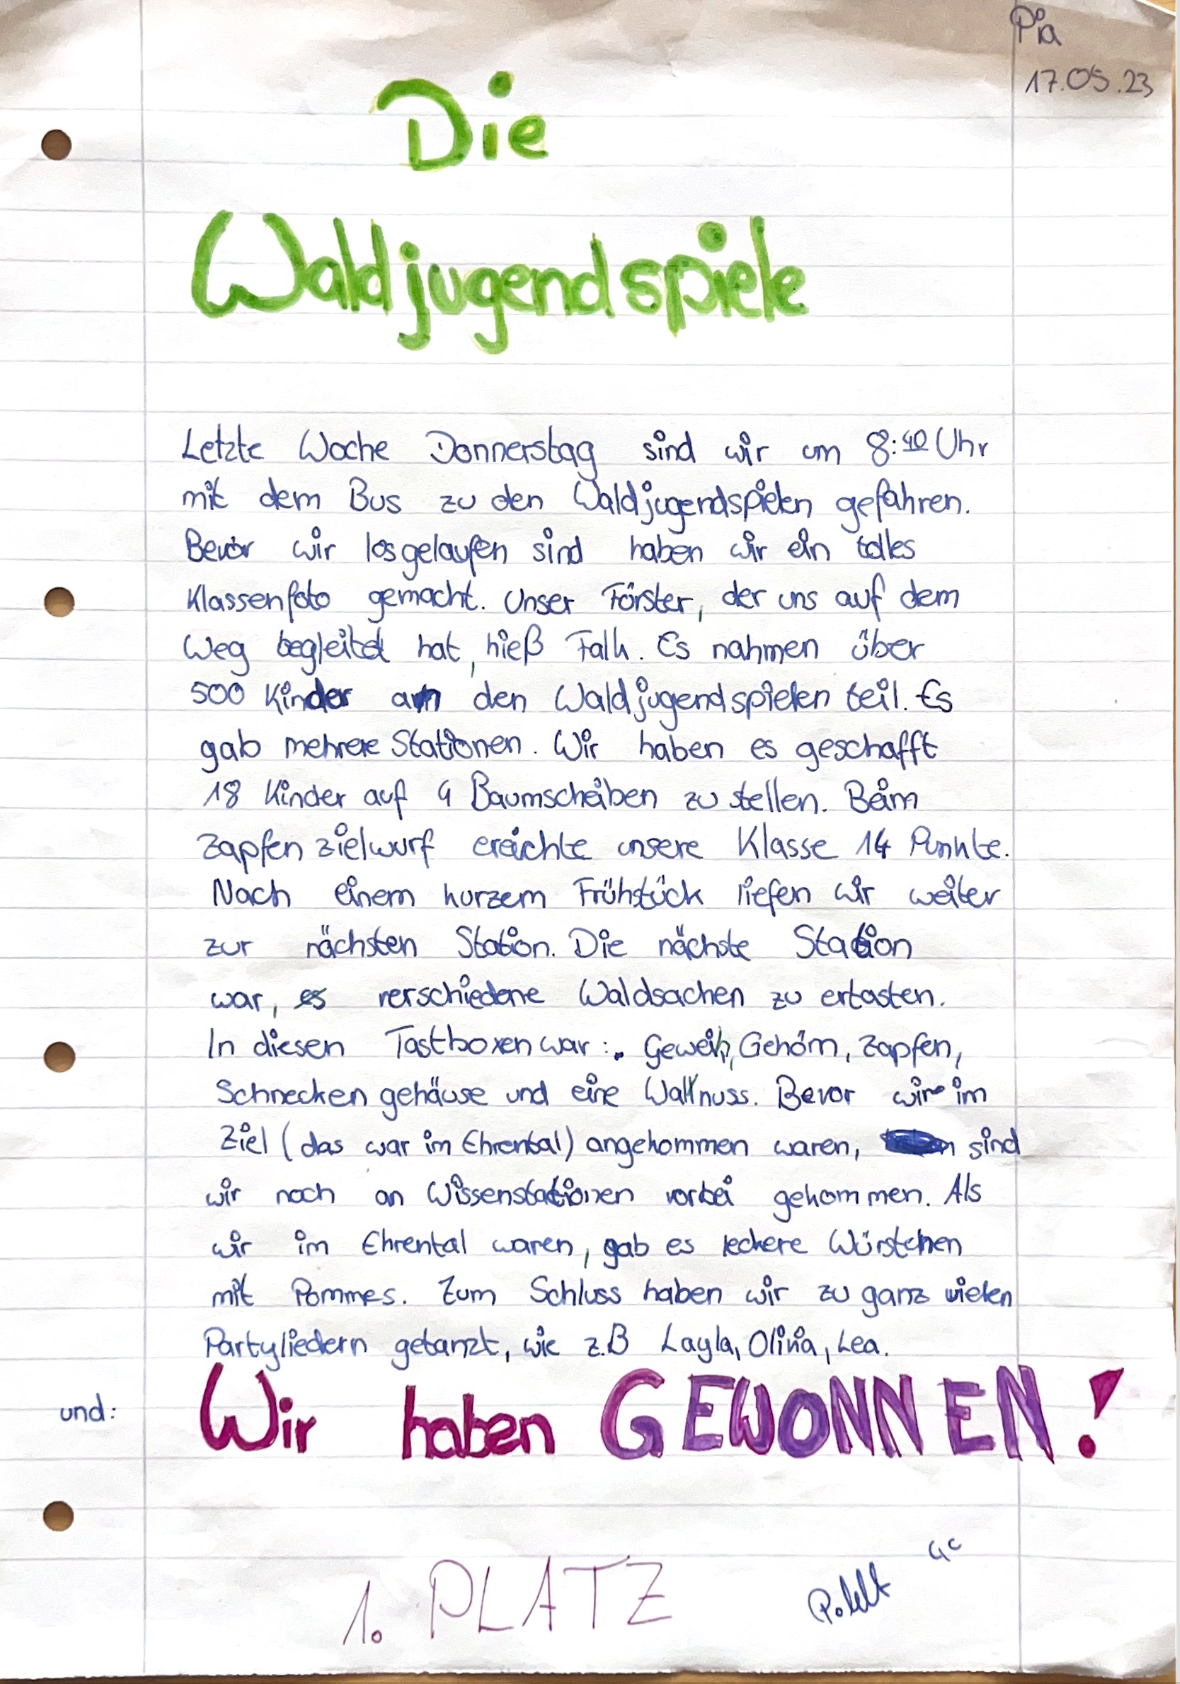 Pia
17.05.23
Die
Waldjugendspiele
Letzte Woche Donnerstag sind wir um 8:40 Uhr
mit dem Bus zu den Waldjugendspielen gefahren.
Bevor wir losgelaufen sind haben wir ein tolles
Klassenfoto gemacht. Unser Förster, der uns auf dem
Weg begleitet hat, hieß Falk. Es nahmen über
500 Kinder an den Waldjugendspielen teil. Es
gab mehrere Stationen. Wir haben es geschafft
18 Kinder auf 4 Baumscheiben zu stellen. Beim
Zapfenzielwurf ereichte unsere Klasse 14 Punkte.
Nach einem kurzem Frühstück liefen wir weiter
zur nächsten Station. Die nächste Station
war, es verschiedene Waldsachen zu ertasten.
In diesen Tastboxen war: Geweih, Gehörn, Zapfen,
Schneckengehäuse und eine Wallnuss. Bevor wir im
Ziel (das war im Ehrental) angekommen waren, sind
wir noch an Wissenstationen vorbei gekommen. Als
wir im Ehrental waren, gab es leckere Würstchen
mit Pommes. Zum Schluss haben wir zu ganz vielen
Partyliedern getanzt, wie z.B Layla, Olivia, Lea.
und: Wir haben GEWONNEN!
4c
1. PLATZ